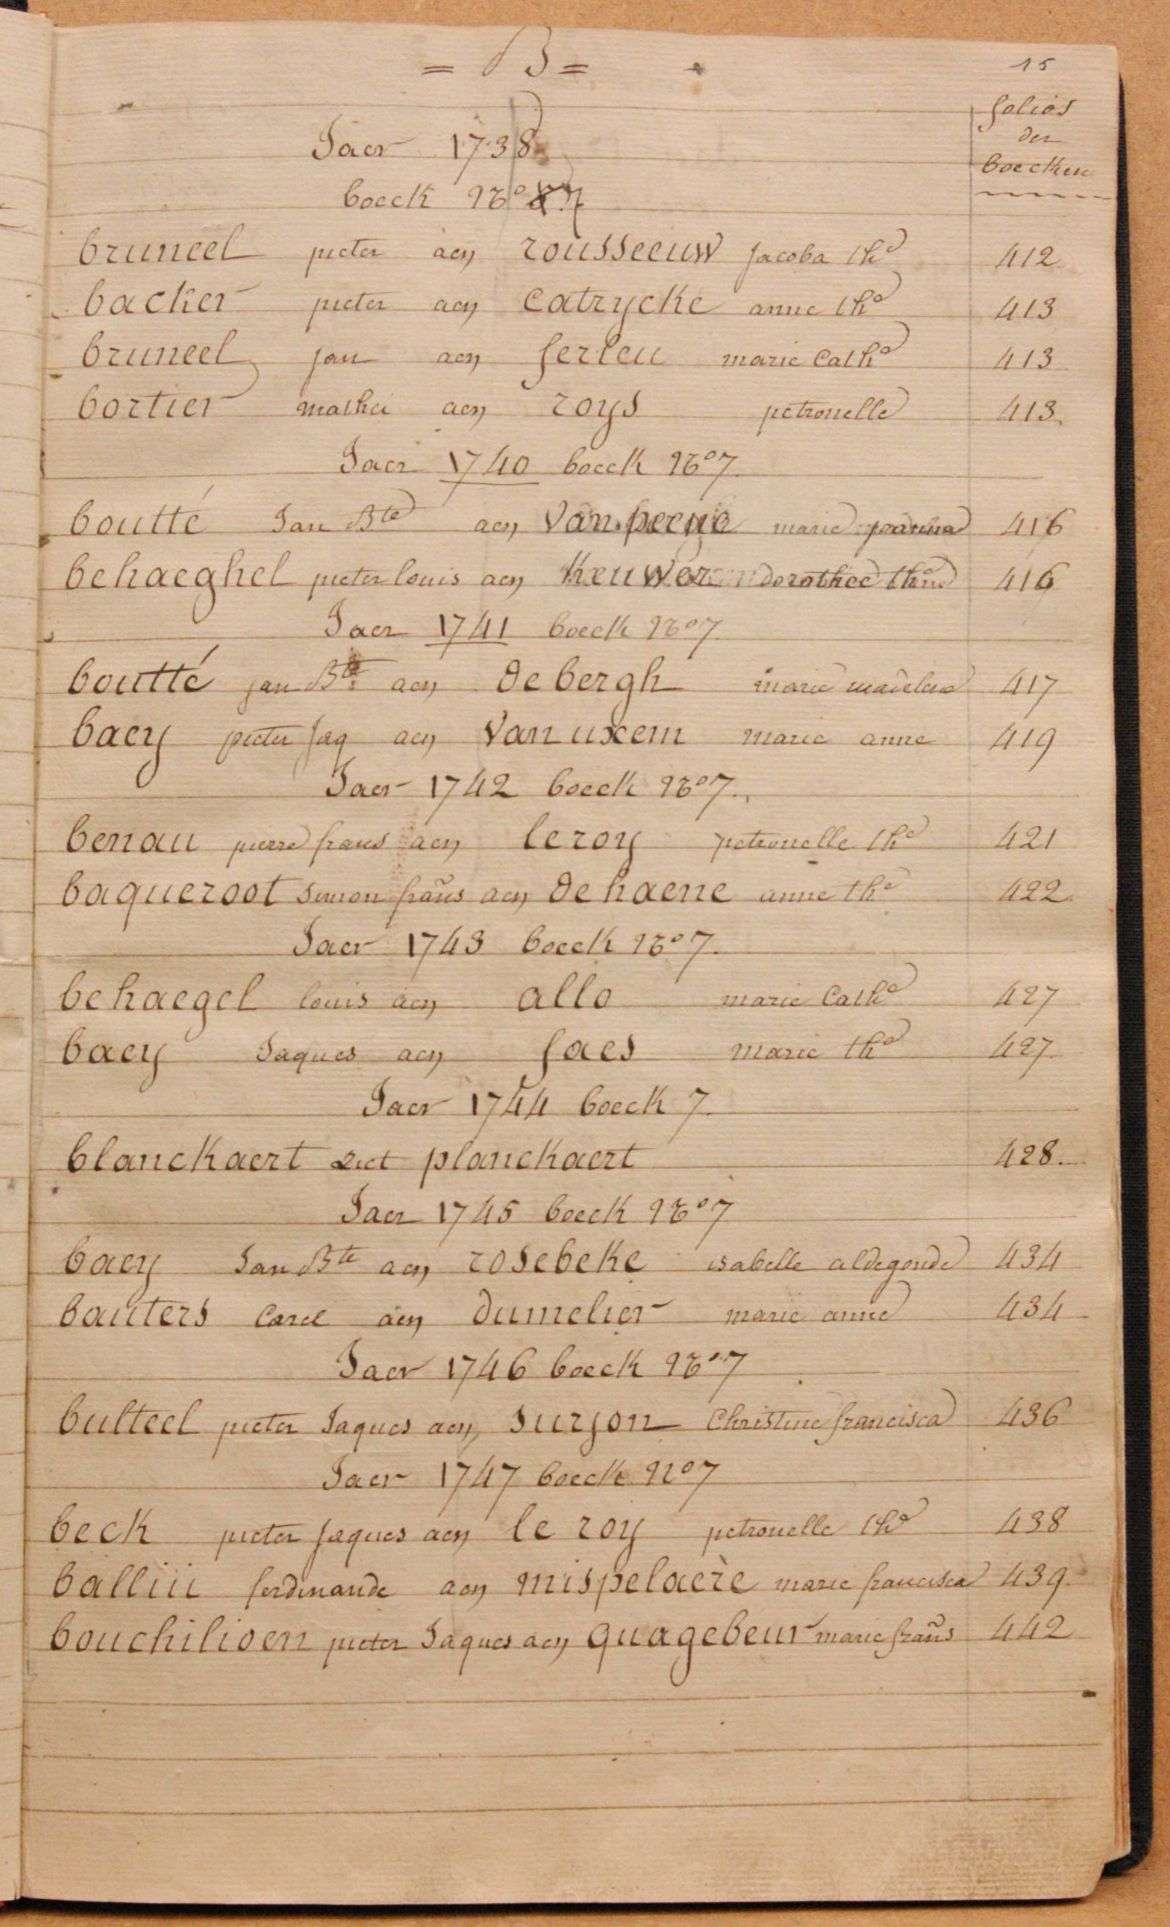 = B =
15
folios
der
boecken
Jaer 1738
boeck No 7
bruneel pieter aen rousseeuw jacoba the 412
backer pieter aen catrycke anne the 413
bruneel jan aen ferleu marie cathe 413
bortier mathei aen roys petronelle 413
Jaer 1740 boeck No 7
boutté Jan Bte aen Van peene marie 416
behaeghel pieter louis aen dorothee 416
Jaer 1741 boeck No 7
boutté jan Bte aen de bergh marie madelene 417
baey pieter jaq aen Van uxem marie anne 419
Jaer 1742 boeck No 7.
benau pierre frans aen leroy petronelle the 421
baqueroot simon frans aen de haene anne the 422
Jaer 1743 boeck No 7.
behaegel louis aen allo marie Cathe 427
baey Jaques aen faes marie the 427
Jaer 1744 boeck 7.
blanckaert siet planckaert 428.
Jaer 1745 boeck No 7
baey Jan Bte aen rosebeke isabelle aldegonde 434
bauters Carel aen dumelier marie anne 434
Jaer 1746 boeck No 7
bulteel pieter Jaques aen surjon Christine francisca 436
Jaer 1747 boeck No 7
beck pieter Jaques aen le roy petronelle the 438
balliu ferdinande aen mispelaere marie francisca 439
bouchilioen pieter Jaques aen quagebeur marie frans 442